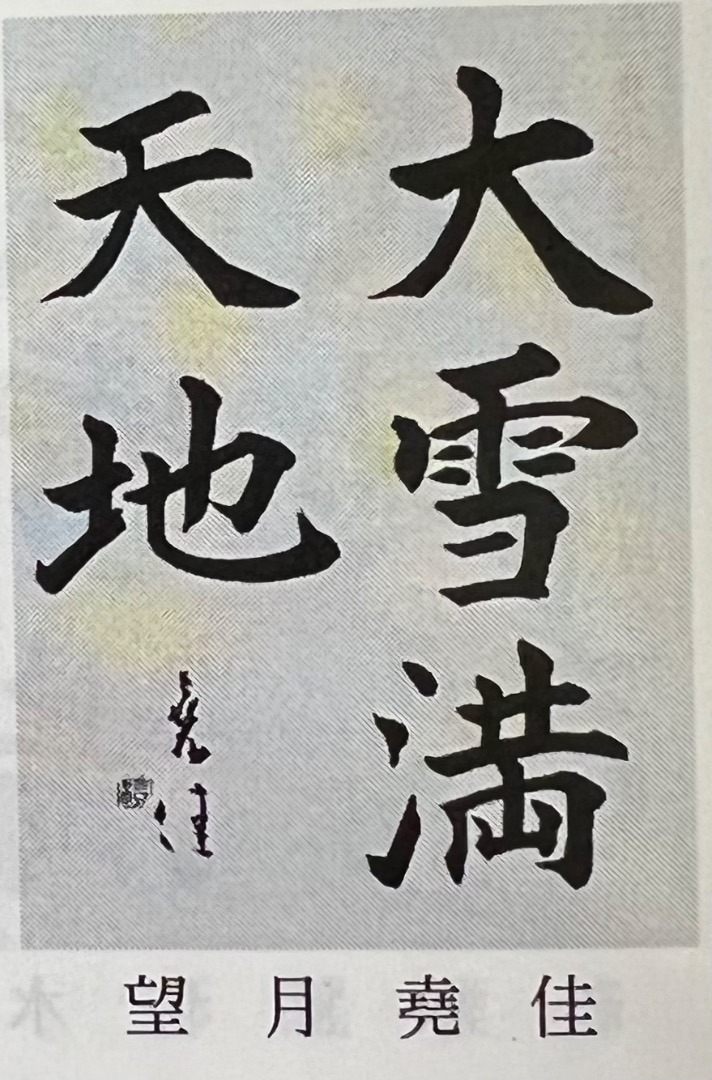 大雪満
天地
堯佳
望月堯佳